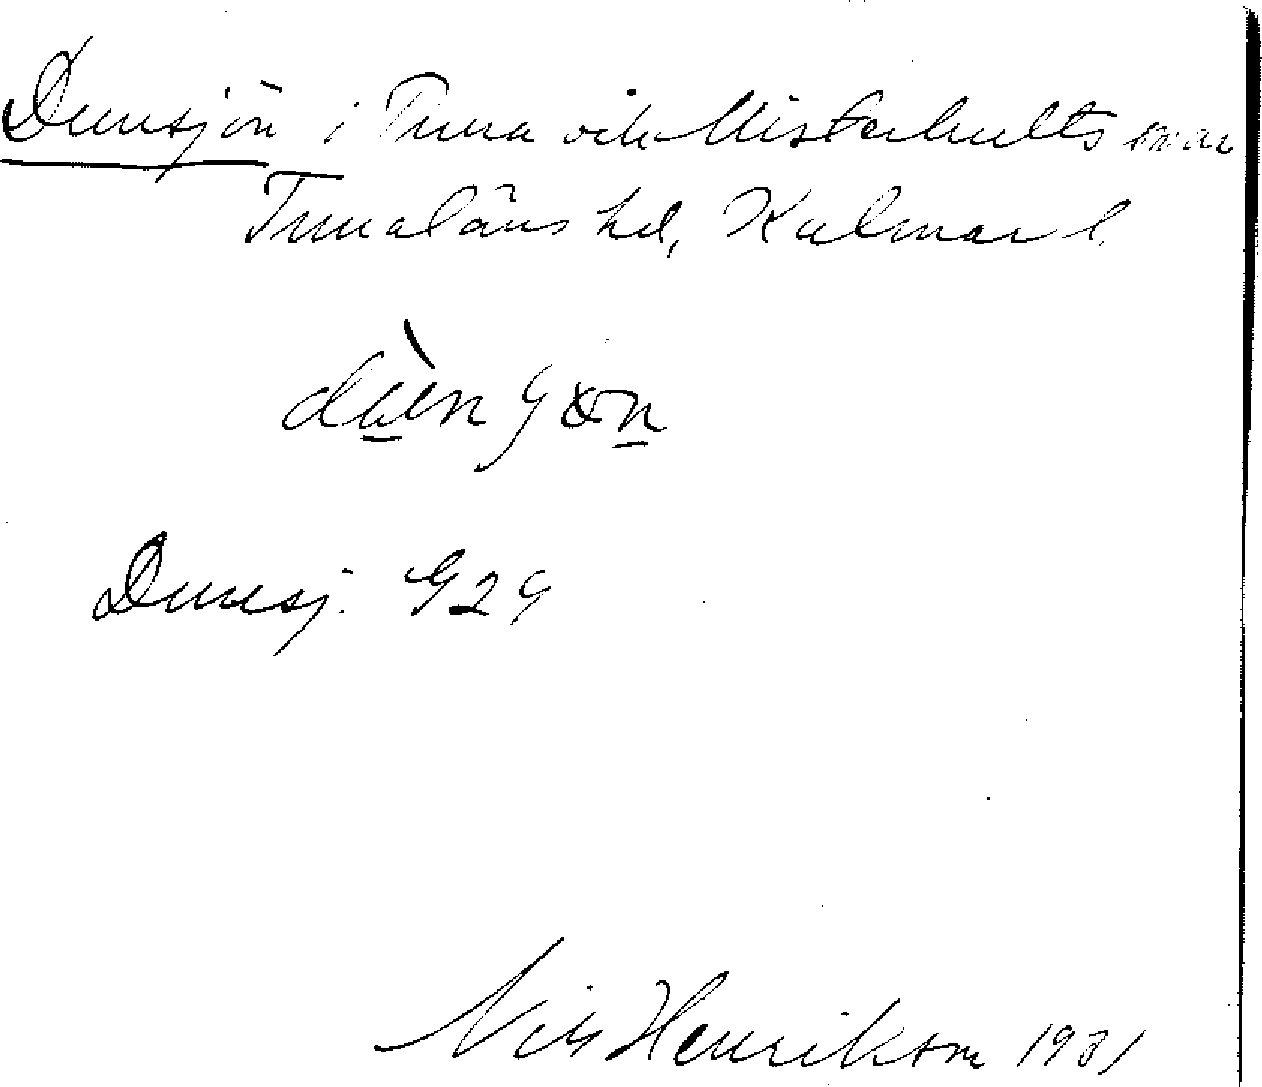 Dunsjön i Tuna och Misterhults snar
Tunaläns hd, Kalmar l.
Dunsj. G29
Nils Henrikson 1931